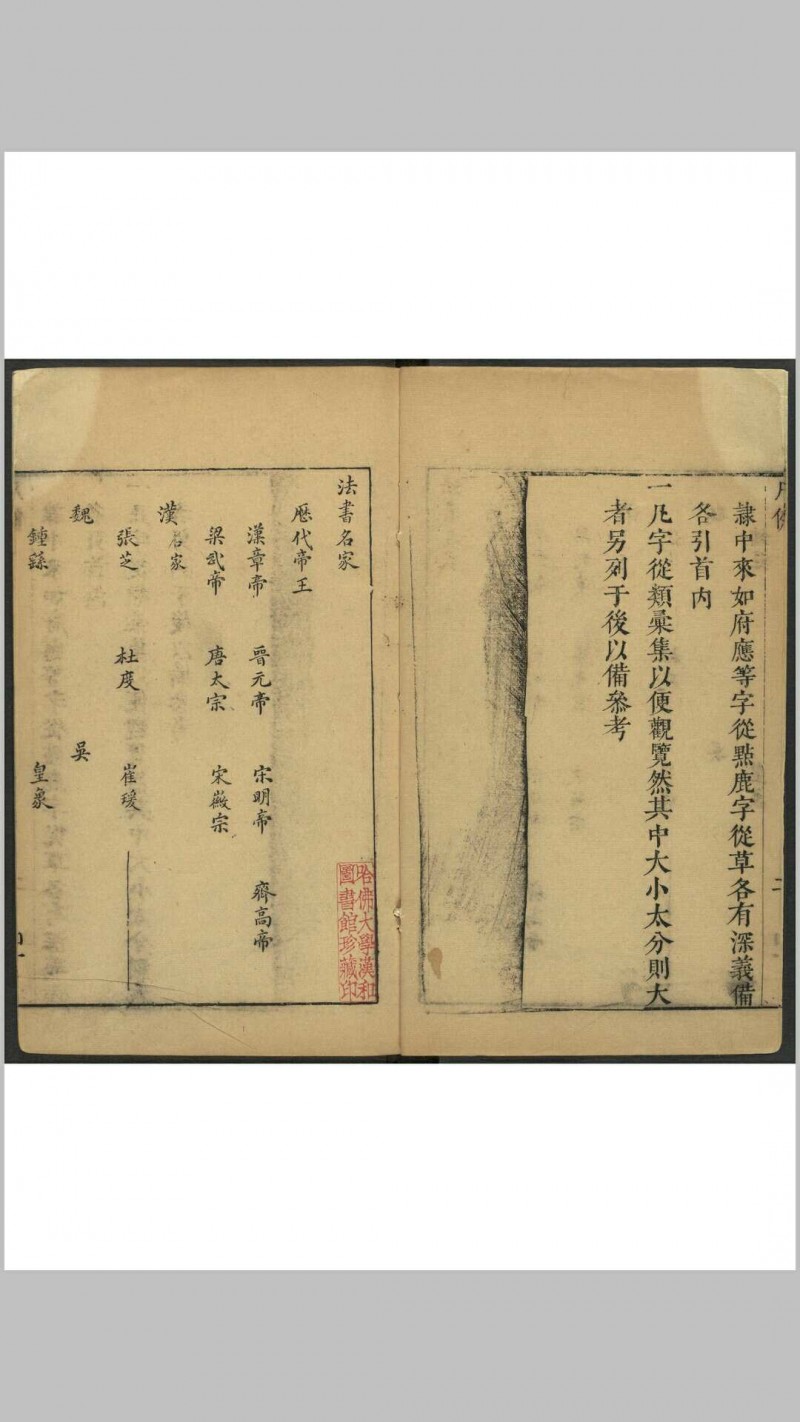 隷中來如府應等字從㸃鹿字從草各有深義備
各引首内
一凡字從類彚集以便觀覽然其中大小太分則大
者另列于後以備叅考
法書名家
歷代帝王
漢章帝 晋元帝 宋明帝 齊高帝
梁武帝 唐太宗 宋徽宗
漢名家
張芝 杜度 崔瑗
魏 吳
鍾繇 皇象
哈佛大學漢和
圖書館珍藏印